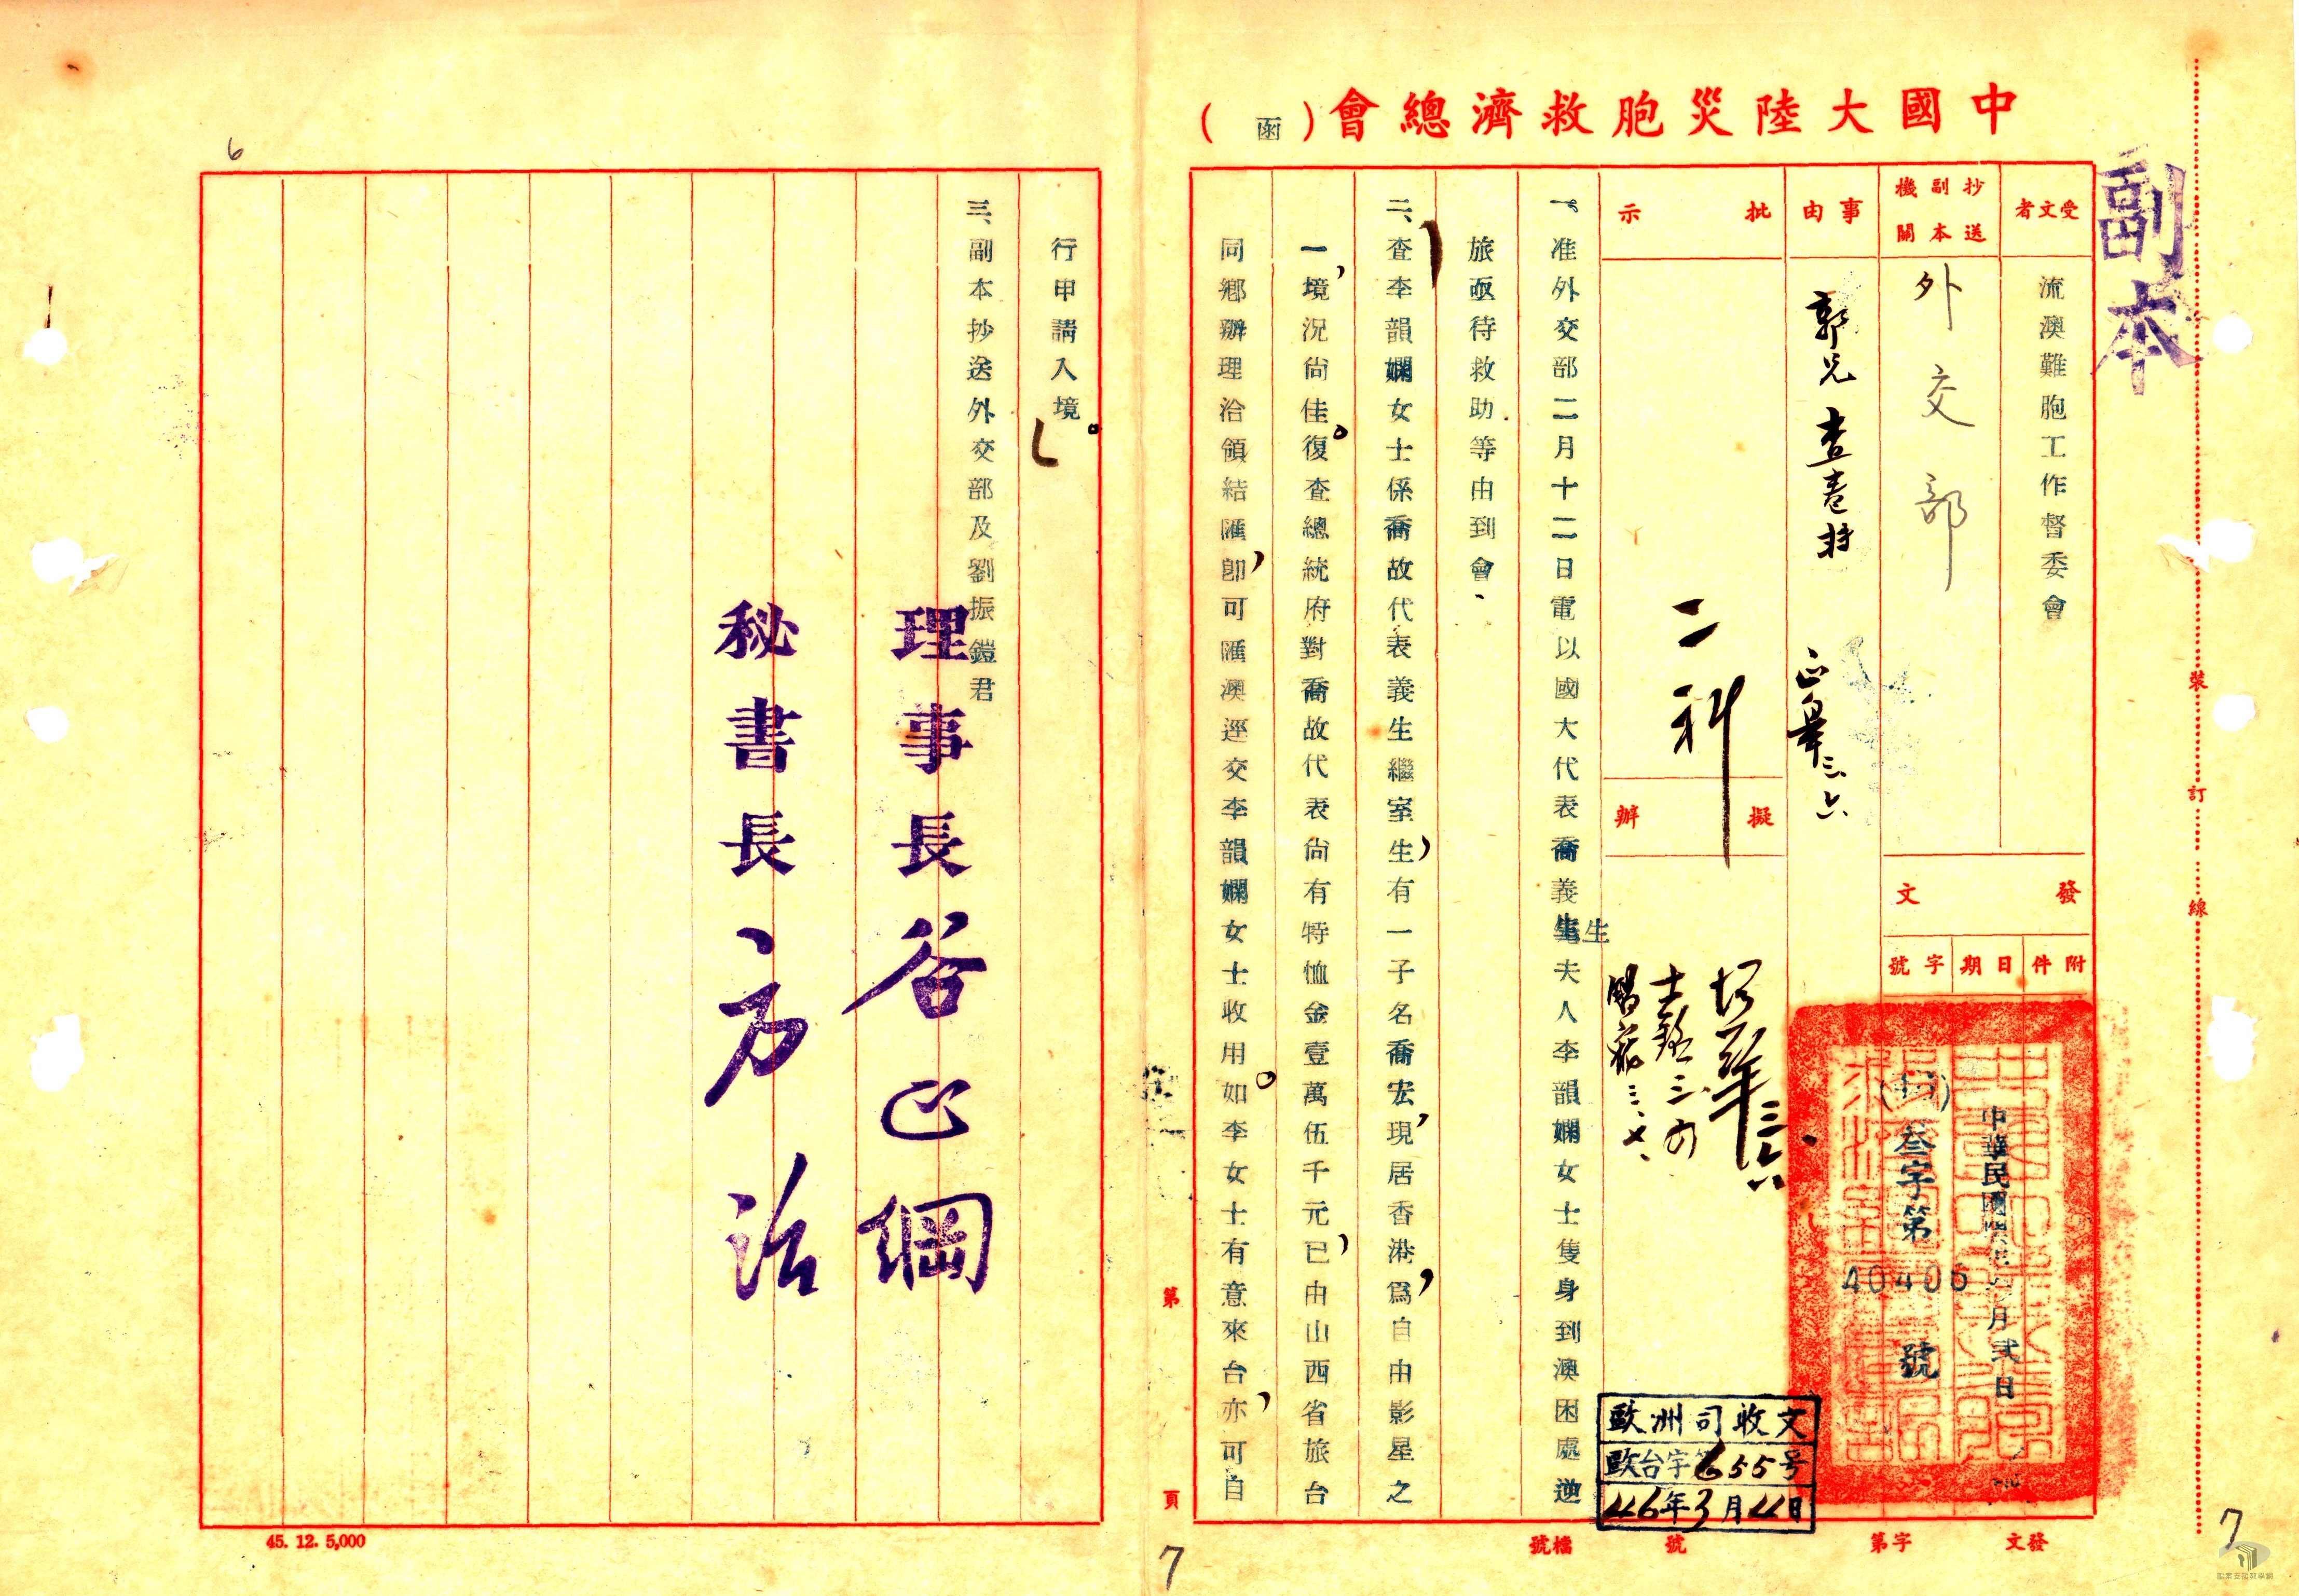 中國大陸災胞救濟總會(函)
副本
受文者
流澳難胞工作督委會
抄送副本機關
外交部
事由
批示
二科
擬辦
發文
附件
日期
字號
叁字第
40406
號
歐洲司收文
歐台字第655号
46年3月4日
一。准外交部二月十二日電以國大代表喬義生夫人李韻嫻女士隻身到澳困處逆
旅亟待救助等由到會、
二、查李韻嫻女士係喬故代表義生繼室,生有一子名喬宏,現居香港,為自由影星之
一,境況尚佳。復查總統府對喬故代表尚有特恤金壹萬伍千元,已由山西省旅台
同鄉辦理洽領結匯,即可匯澳逕交李韻嫻女士收用。如李女士有意來台,亦可自
行申請入境。
三、副本抄送外交部及劉振鎧君
理事長谷正綱
秘書長方治
裝訂線
第頁
發文
字第
號
檔號
45. 12. 5,000
6
7
7